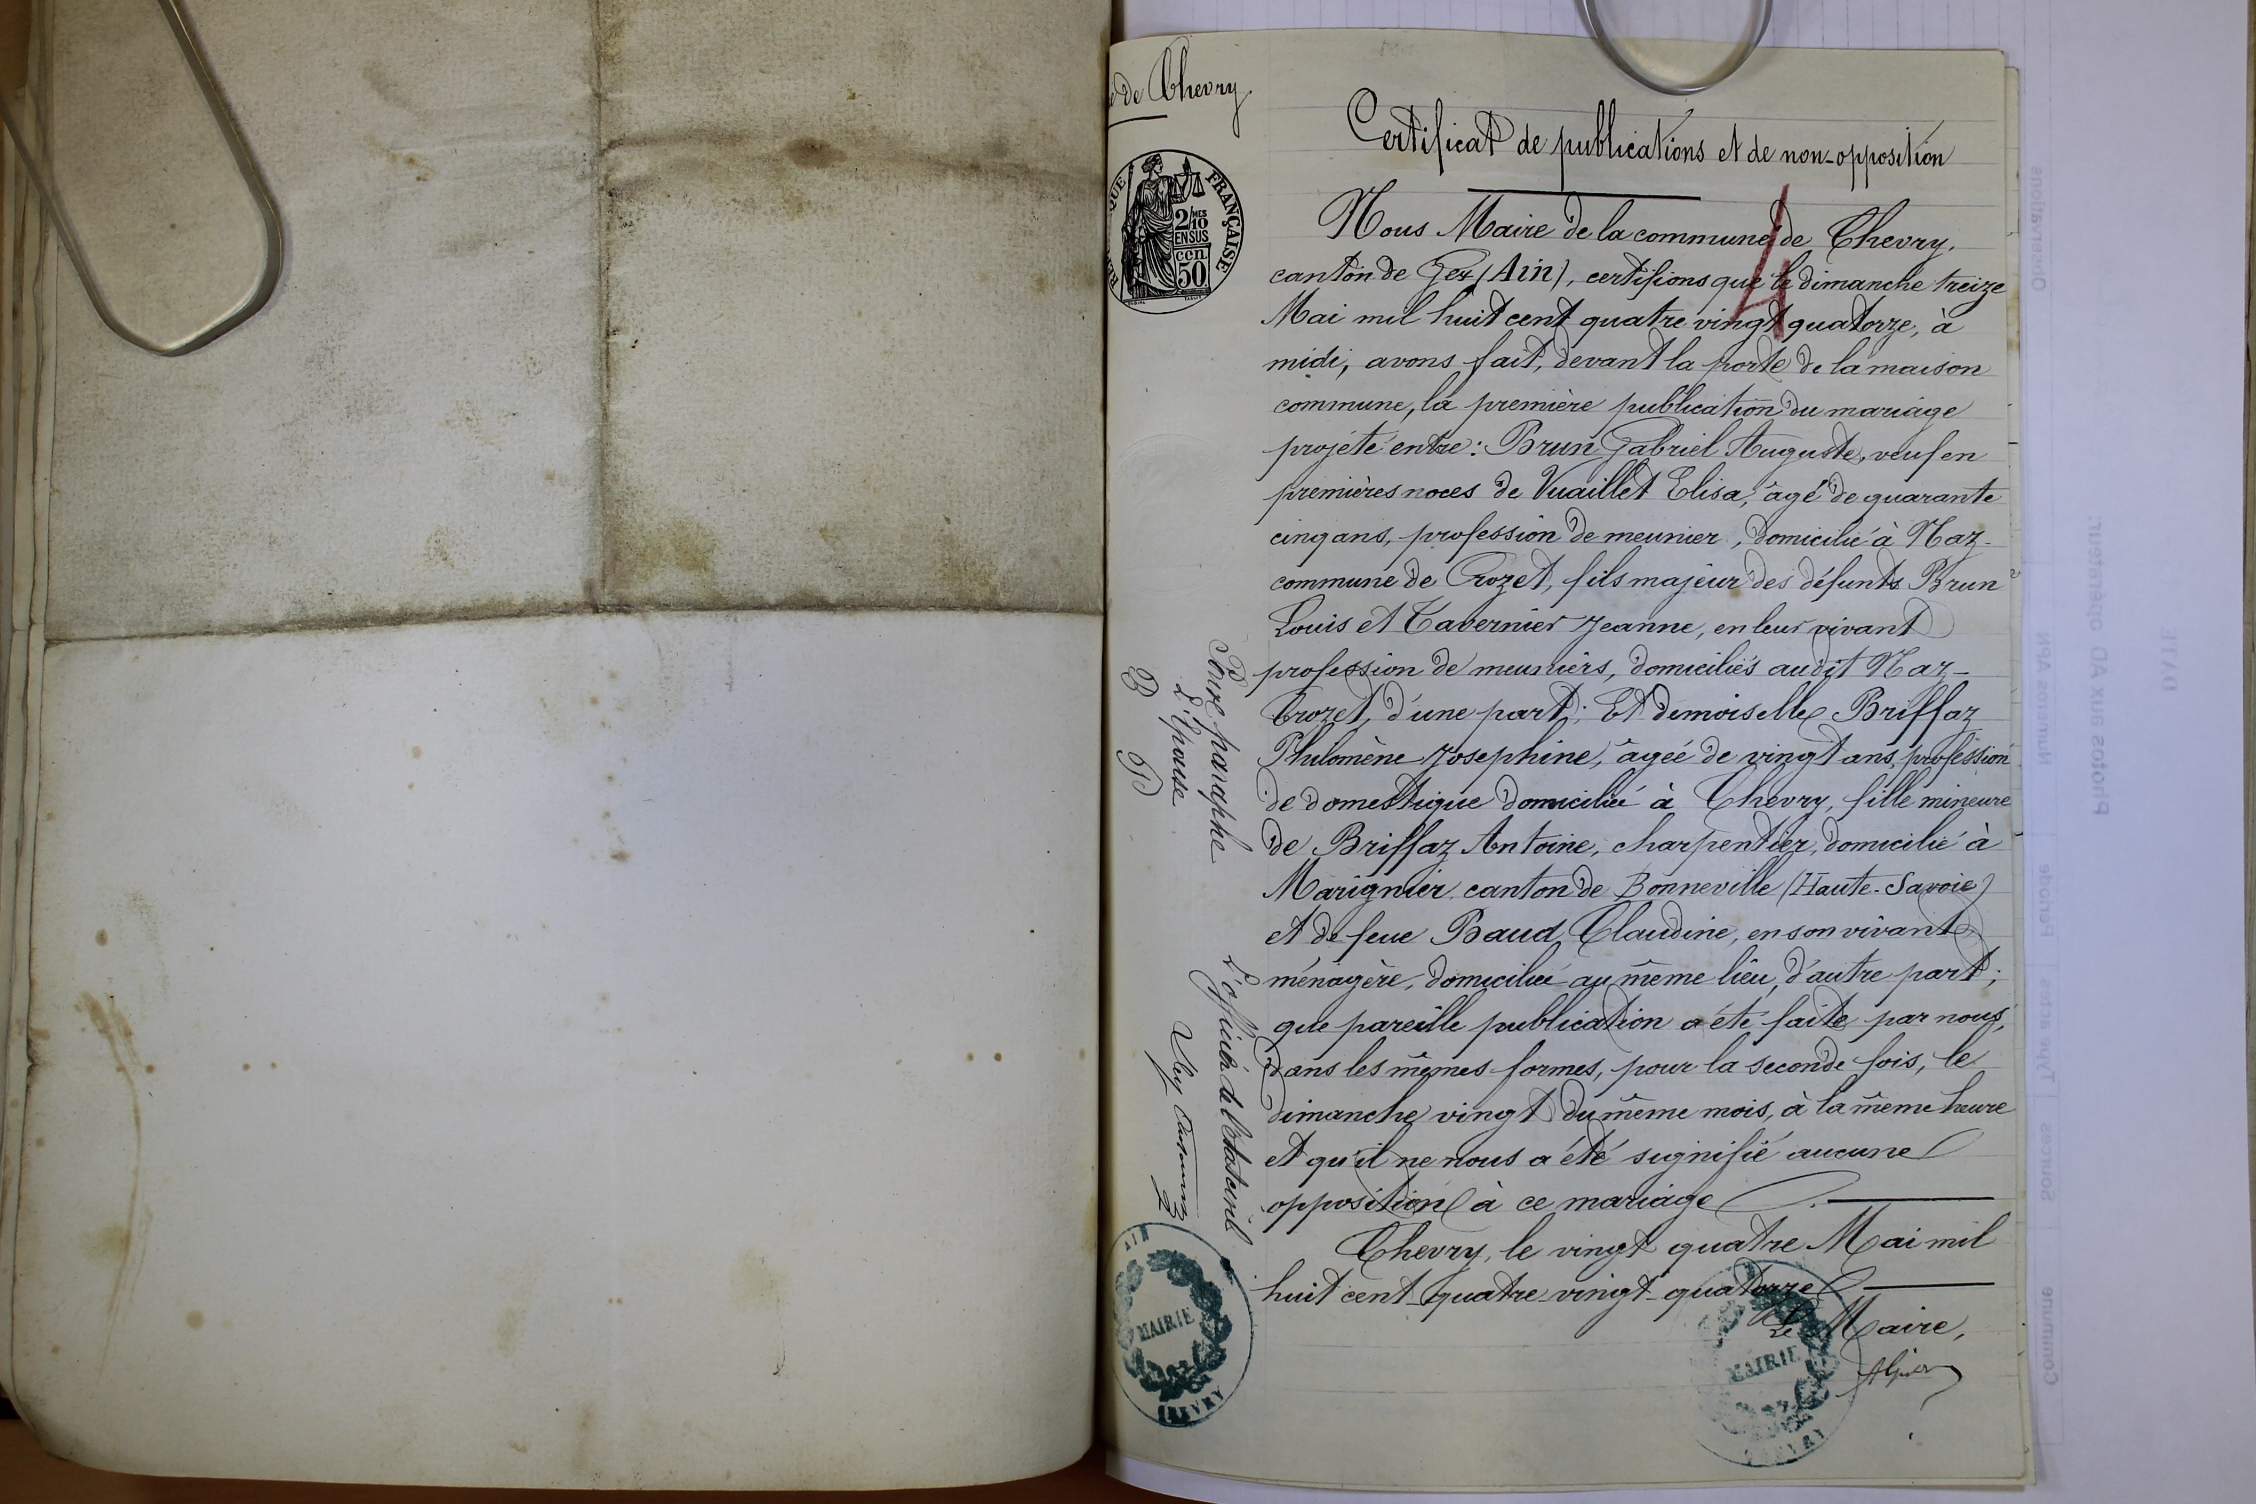 de Chevry
Certificat de publications et de non-opposition
RÉPUBLIQUE FRANÇAISE
2/10 MES
EN SUS
50 cen
Nous Maire de la commune de Chevry,
canton de Gex (Ain), certifions que le dimanche treize
Mai mil huit cent quatre vingt quatorze, à
midi, avons fait, devant la porte de la maison
commune, la première publication du mariage
projété entre : Brun Gabriel Auguste, veuf en
premières noces de Vuaillet Elisa, âgé de quarante
cinq ans, profession de meunier, domicilié à Naz-
commune de Crozet, fils majeur des défunts Brun
Louis et Tavernier Jeanne, en leur vivant
profession de meuniers, domiciliés audit Naz-
Crozet, d'une part ; Et demoiselle Briffaz
Philomène Josephine, âgée de vingt ans, profession
de domestique domiciliée à Chevry, fille mineure
de Briffaz Antoine, charpentier, domicilié à
Marignier canton de Bonneville (Haute-Savoie)
et de feue Baud Claudine, en son vivant
ménagère, domiciliée au même lieu, d'autre part ;
que pareille publication a été faite par nous,
dans les mêmes formes, pour la seconde fois, le
dimanche vingt du même mois, à la même heure
et qu'il ne nous a été signifié aucune
opposition à ce mariage.
Chevry, le vingt quatre Mai mil
huit cent quatre-vingt-quatorze
Le Maire,
Pour paraphe
L'Epouse
B P
L'officier de l'état civil
AIN
MAIRIE
CHEVRY
MAIRIE
CHEVRY
4
Observations
Photos aux AD opérateur:
Numéros APN
DATE
Commune
Sources
Type actes
Période